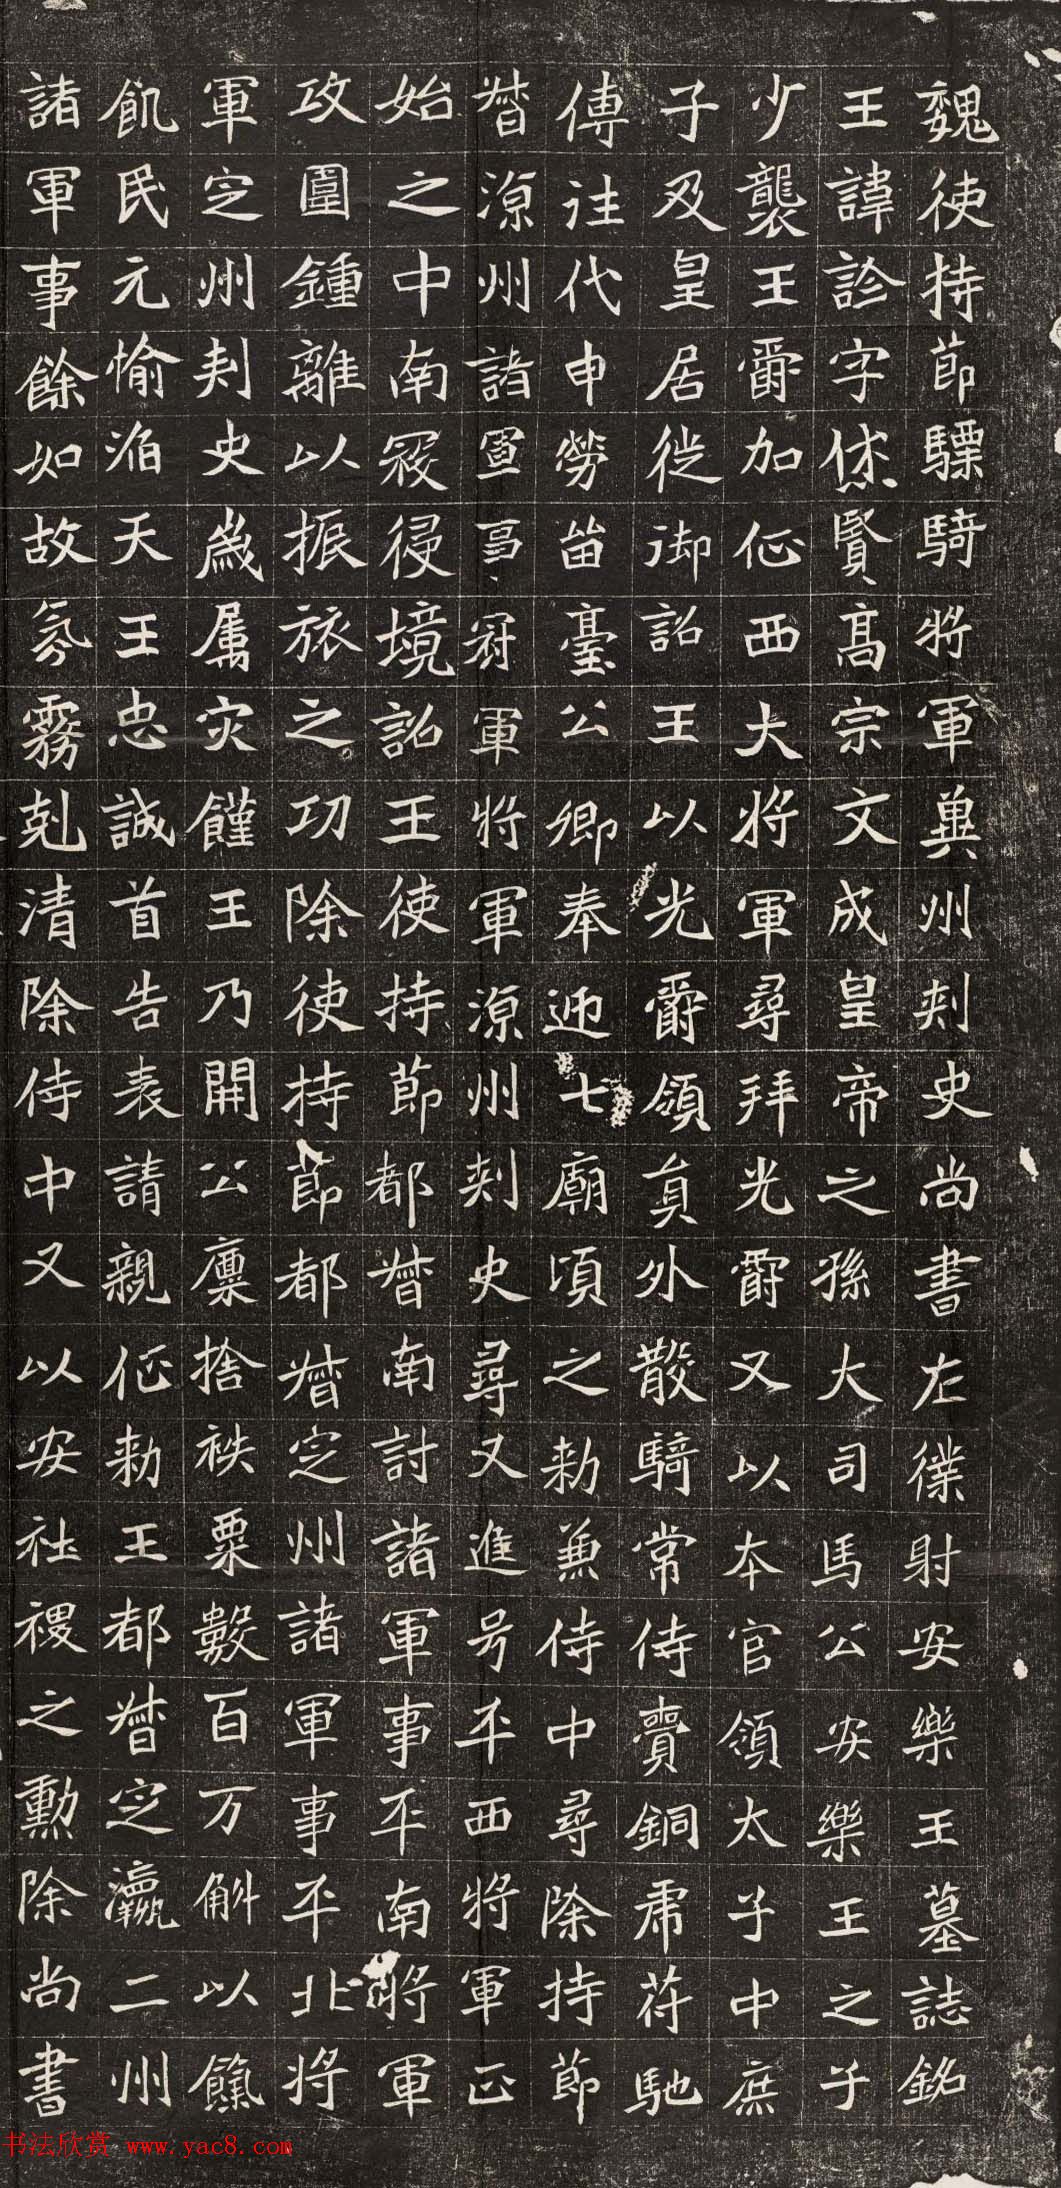 魏使持節驃騎將軍冀州刺史尚書左僕射安樂王墓誌銘
王諱詮字休賢高宗文成皇帝之孫大司馬公安樂王之子
少襲王爵加征西大將軍尋拜光爵又以本官領太子中庶
子及皇居徙御詔王以光爵領員外散騎常侍賫銅虎苻馳
傳注代申勞留臺公卿奉迎七廟頃之勑兼侍中尋除持節
督涼州諸軍事冠軍將軍涼州刺史尋又進号平西將軍正
始之中南寇侵境詔王使持節都督南討諸軍事平南將軍
攻圍鍾離以振旅之功除使持節都督定州諸軍事平北將
軍定州刺史歲属灾饉王乃開公廩捨秩粟數百万斛以餼
飢民元愉滔天王忠誠首告表請親征勑王都督定瀛二州
諸軍事餘如故氛霧剋清除侍中又以安社禝之勳除尚書
书法欣赏 www.yac8.com